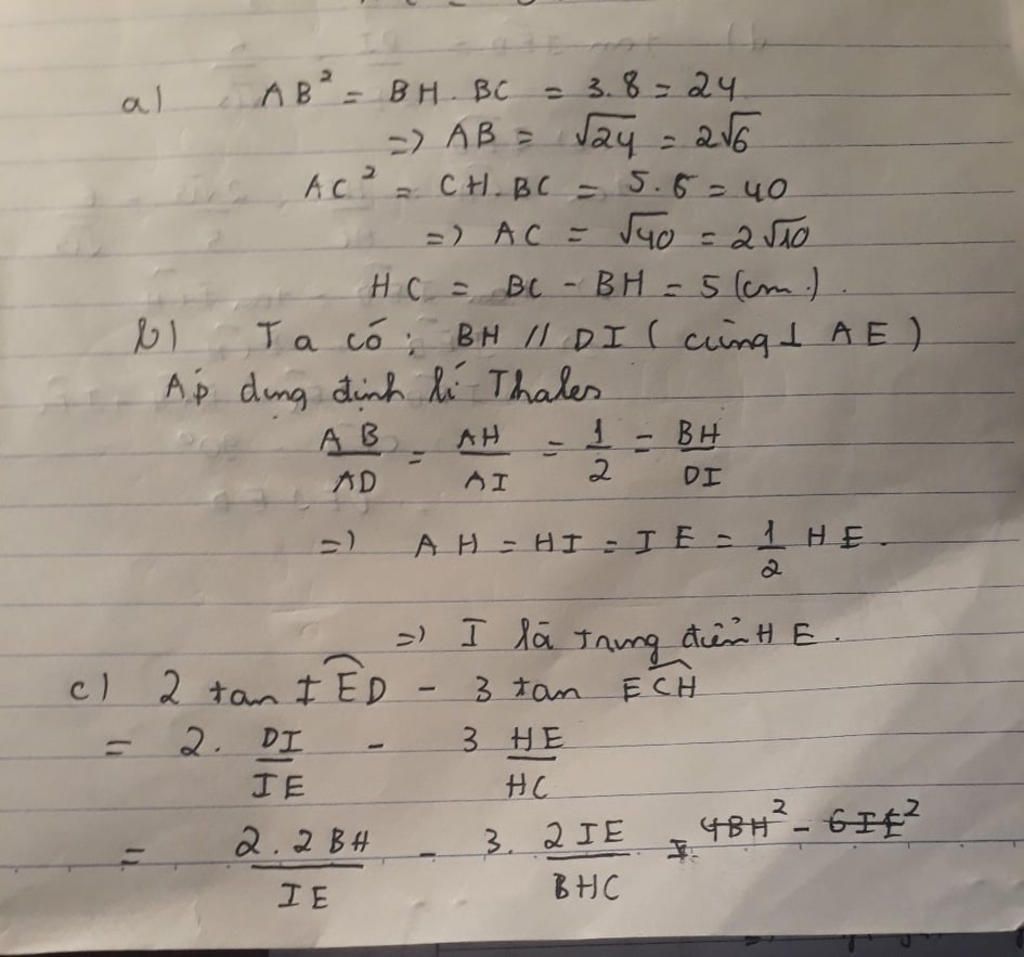 a) AB² = BH . BC = 3.8 = 24
=> AB = √24 = 2√6
AC² = CH . BC = 5.6 = 40
=> AC = √40 = 2√10
HC = BC - BH = 5 (cm.).
b) Ta có : BH // DI ( cùng ⊥ AE )
Áp dung định lí Thales
AB/AD = AH/AI = 1/2 = BH/DI
=> AH = HI = IE = 1/2 HE.
=> I là trung điểm HE.
c) 2 tan IÊD - 3 tan EĈH
= 2. DI/IE - 3 HE/HC
= 2.2BH/IE - 3. 2IE/BHC = 4BH² - 6IE²